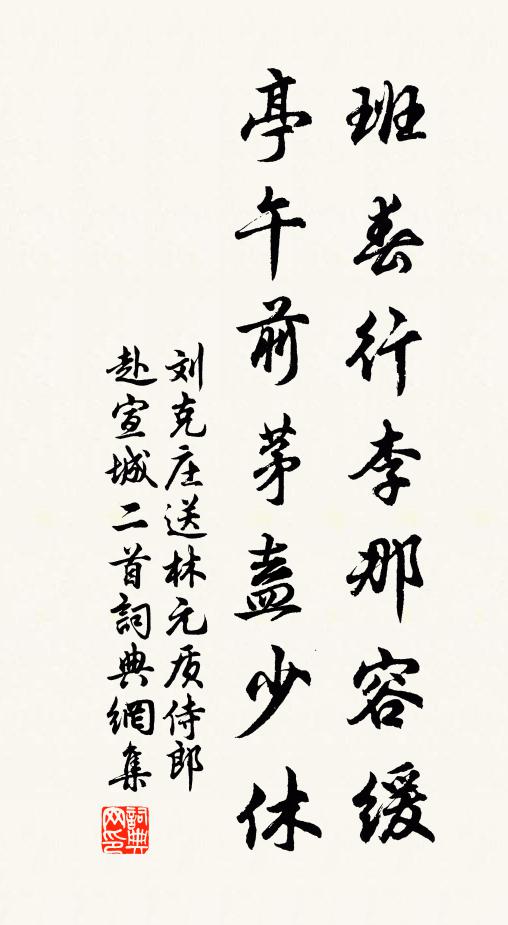 班春行李那容缓
亭午前茅盍少休
刘克庄送林元质侍郎
赴宣城二首詞典網集
詞典
网印